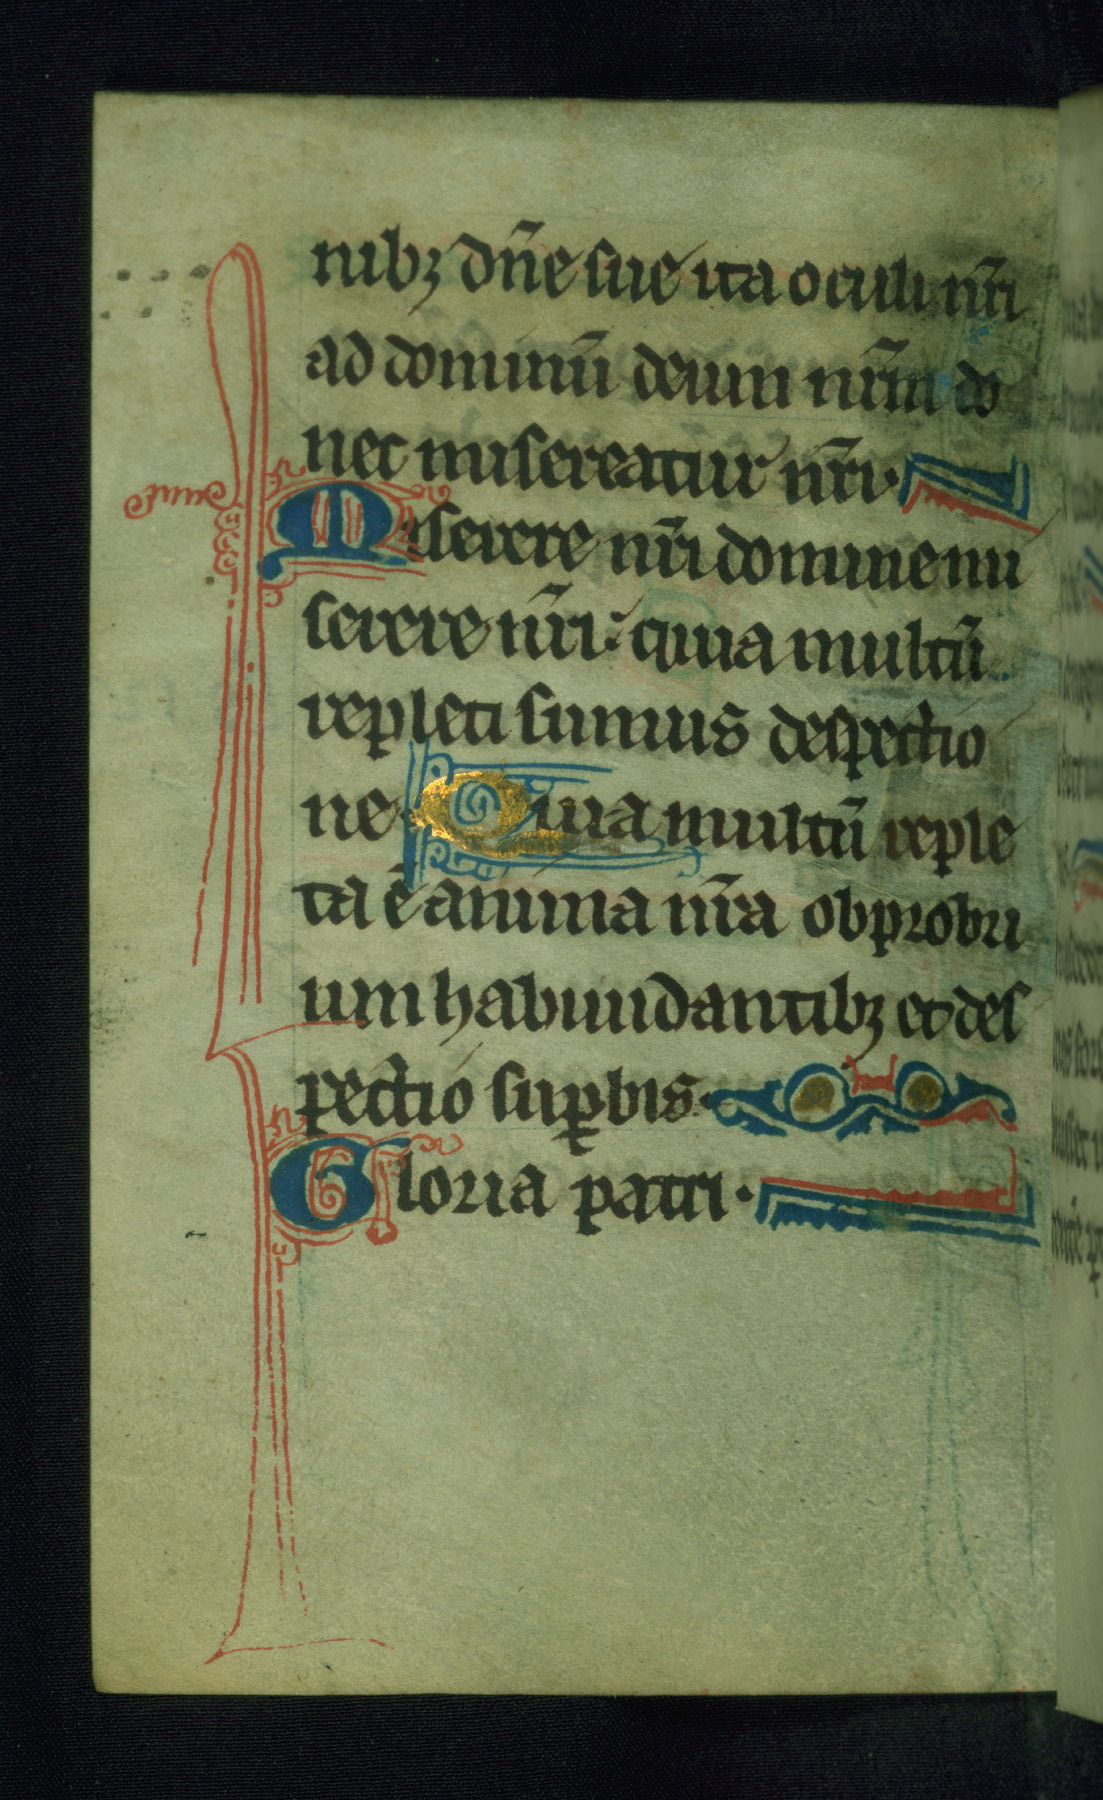 nibꝫ dn̄e sue ita oculi nr̄i
ad dominū deum nr̄m do
nec misereatur nr̄i·
Miserere nr̄i domine mi
serere nr̄i· quia multū
repleti sumus despectio
ne· Quia multū reple
ta ē anima nr̄a obprobri
um habundantibꝫ et des
pectio suꝑbis·
Gloria patri·